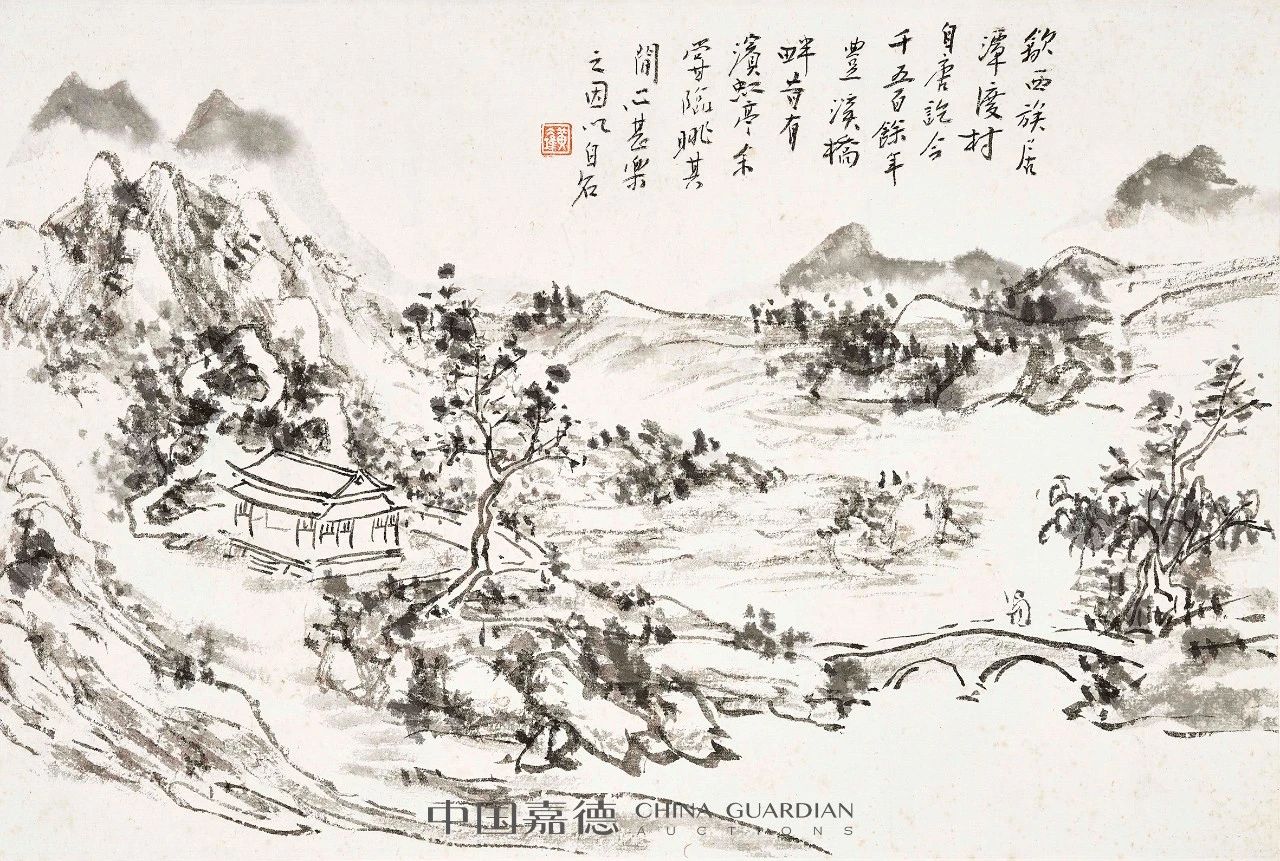 歙西族居
潭渡村
自唐訖今
千五百餘年
豊溪橋
畔昔有
濱虹亭余
嘗臨眺其
間心甚樂
之因以自名
中国嘉德 CHINA GUARDIAN
AUCTIONS